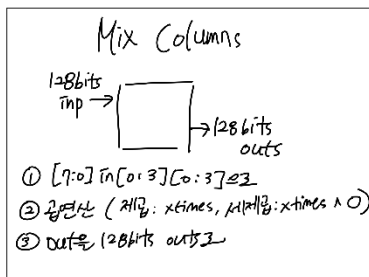 Mix Columns
128bits
inp
128bits
outs
① [7:0] in[0:3][0:3]으로
② 곱연산 (제곱: xtimes, 세제곱: xtimes ^ 0)
③ out을 128bits outs로